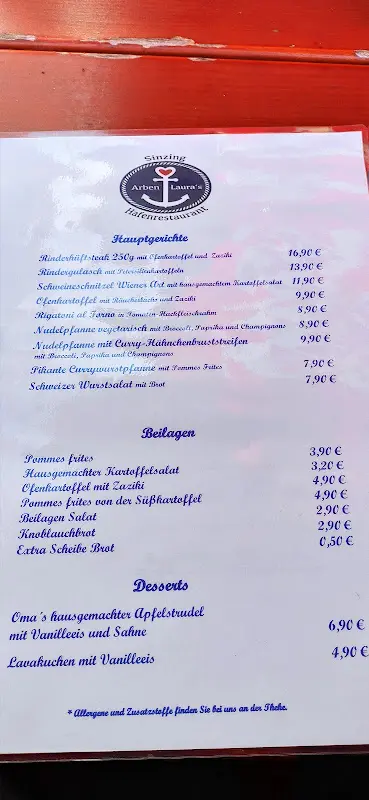 Sinzing
Arben Laura's
Hafenrestaurant
Hauptgerichte
Rinderhüftsteak 250g mit Ofenkartoffel und Zaziki 16,90 €
Rindergulasch mit Petersilienkartoffeln 13,90 €
Schweineschnitzel Wiener Art mit hausgemachtem Kartoffelsalat 11,90 €
Ofenkartoffel mit Räucherlachs und Zaziki 9,90 €
Rigatoni al Forno in Tomaten-Hackfleischrahm 8,90 €
Nudelpfanne vegetarisch mit Broccoli, Paprika und Champignons 8,90 €
Nudelpfanne mit Curry-Hähnchenbruststreifen 9,90 €
mit Broccoli, Paprika und Champignons
Pikante Currywurstpfanne mit Pommes Frites 7,90 €
Schweizer Wurstsalat mit Brot 7,90 €
Beilagen
Pommes frites 3,90 €
Hausgemachter Kartoffelsalat 3,20 €
Ofenkartoffel mit Zaziki 4,90 €
Pommes frites von der Süßkartoffel 4,90 €
Beilagen Salat 2,90 €
Knoblauchbrot 2,90 €
Extra Scheibe Brot 0,50 €
Desserts
Oma´s hausgemachter Apfelstrudel
mit Vanilleeis und Sahne 6,90 €
Lavakuchen mit Vanilleeis 4,90 €
* Allergene und Zusatzstoffe finden Sie bei uns an der Theke.